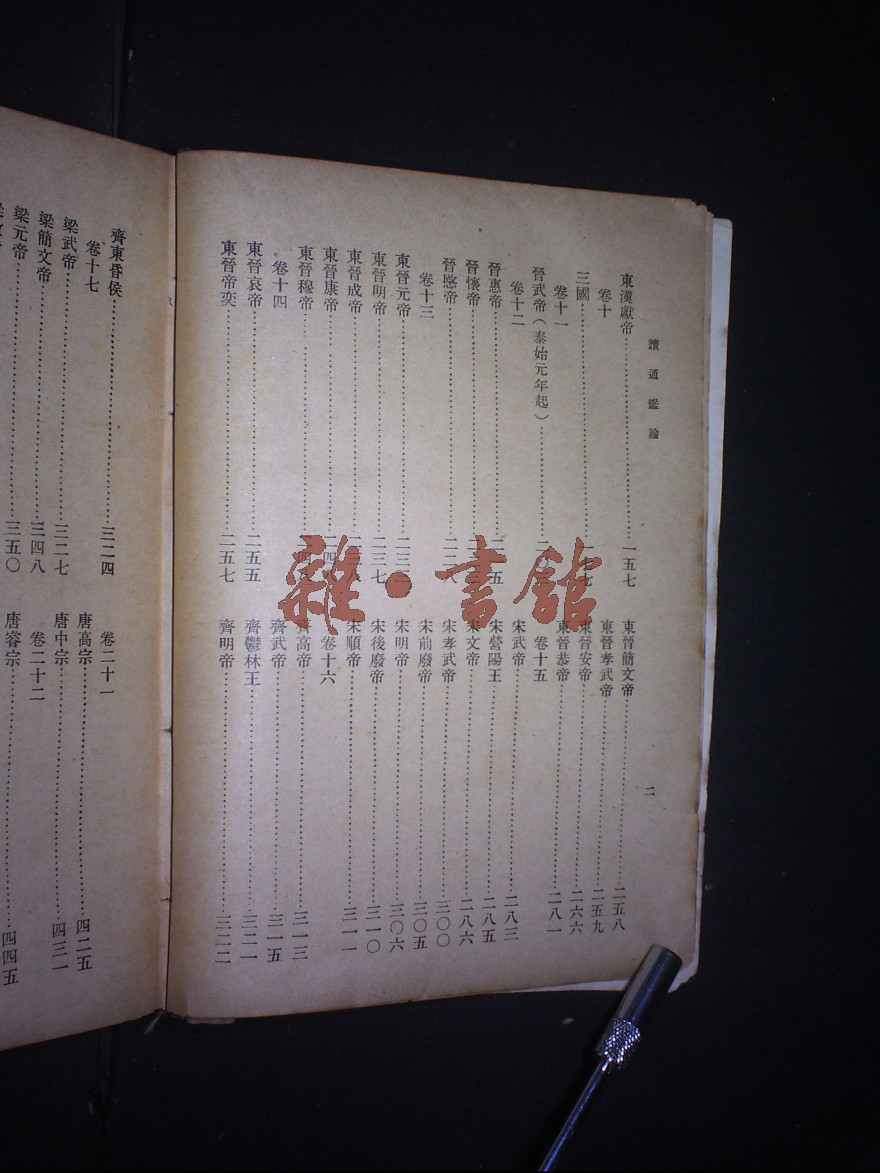 讀通鑑論
二
東漢獻帝……一五七
卷十
三國
卷十一
晉武帝（泰始元年起）
卷十二
晉惠帝
晉懷帝
晉愍帝
卷十三
東晉元帝
東晉明帝……二三七
東晉成帝
東晉康帝
東晉穆帝
卷十四
東晉哀帝……二五五
東晉帝奕……二五七
東晉簡文帝……二五八
東晉孝武帝……二五九
東晉安帝……二六六
東晉恭帝……二八一
卷十五
宋武帝……二八三
宋營陽王……二八五
宋文帝……二八六
宋孝武帝……三〇〇
宋前廢帝……三〇五
宋明帝……三〇六
宋後廢帝……三一〇
宋順帝……三一一
卷十六
齊高帝……三一三
齊武帝……三一五
齊鬱林王……三二一
齊明帝……三二二
齊東昏侯……三二四
卷十七
梁武帝……三二七
梁簡文帝……三四八
梁元帝……三五〇
卷二十一
唐高宗……四二五
唐中宗……四三一
卷二十二
唐睿宗……四四五
雜·書館